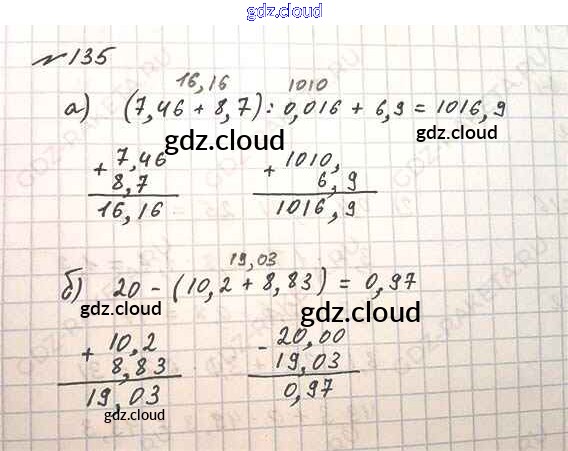 gdz.cloud
gdz.cloud
№ 135
16,16 1010
а) (7,46 + 8,7) : 0,016 + 6,9 = 1016,9
gdz.cloud gdz.cloud
+ 7,46
8,7
16,16
+ 1010,
6,9
1016,9
19,03
б) 20 - (10,2 + 8,83) = 0,97
gdz.cloud gdz.cloud
+ 10,2
8,83
19,03
- 20,00
19,03
0,97
gdz.cloud gdz.cloud